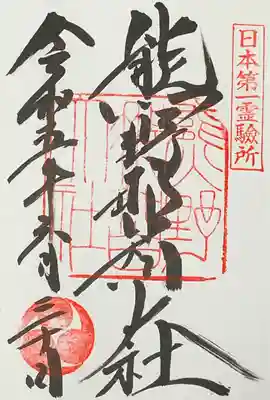 日本第一霊驗所
熊野那智大社
令和五年 月三十日